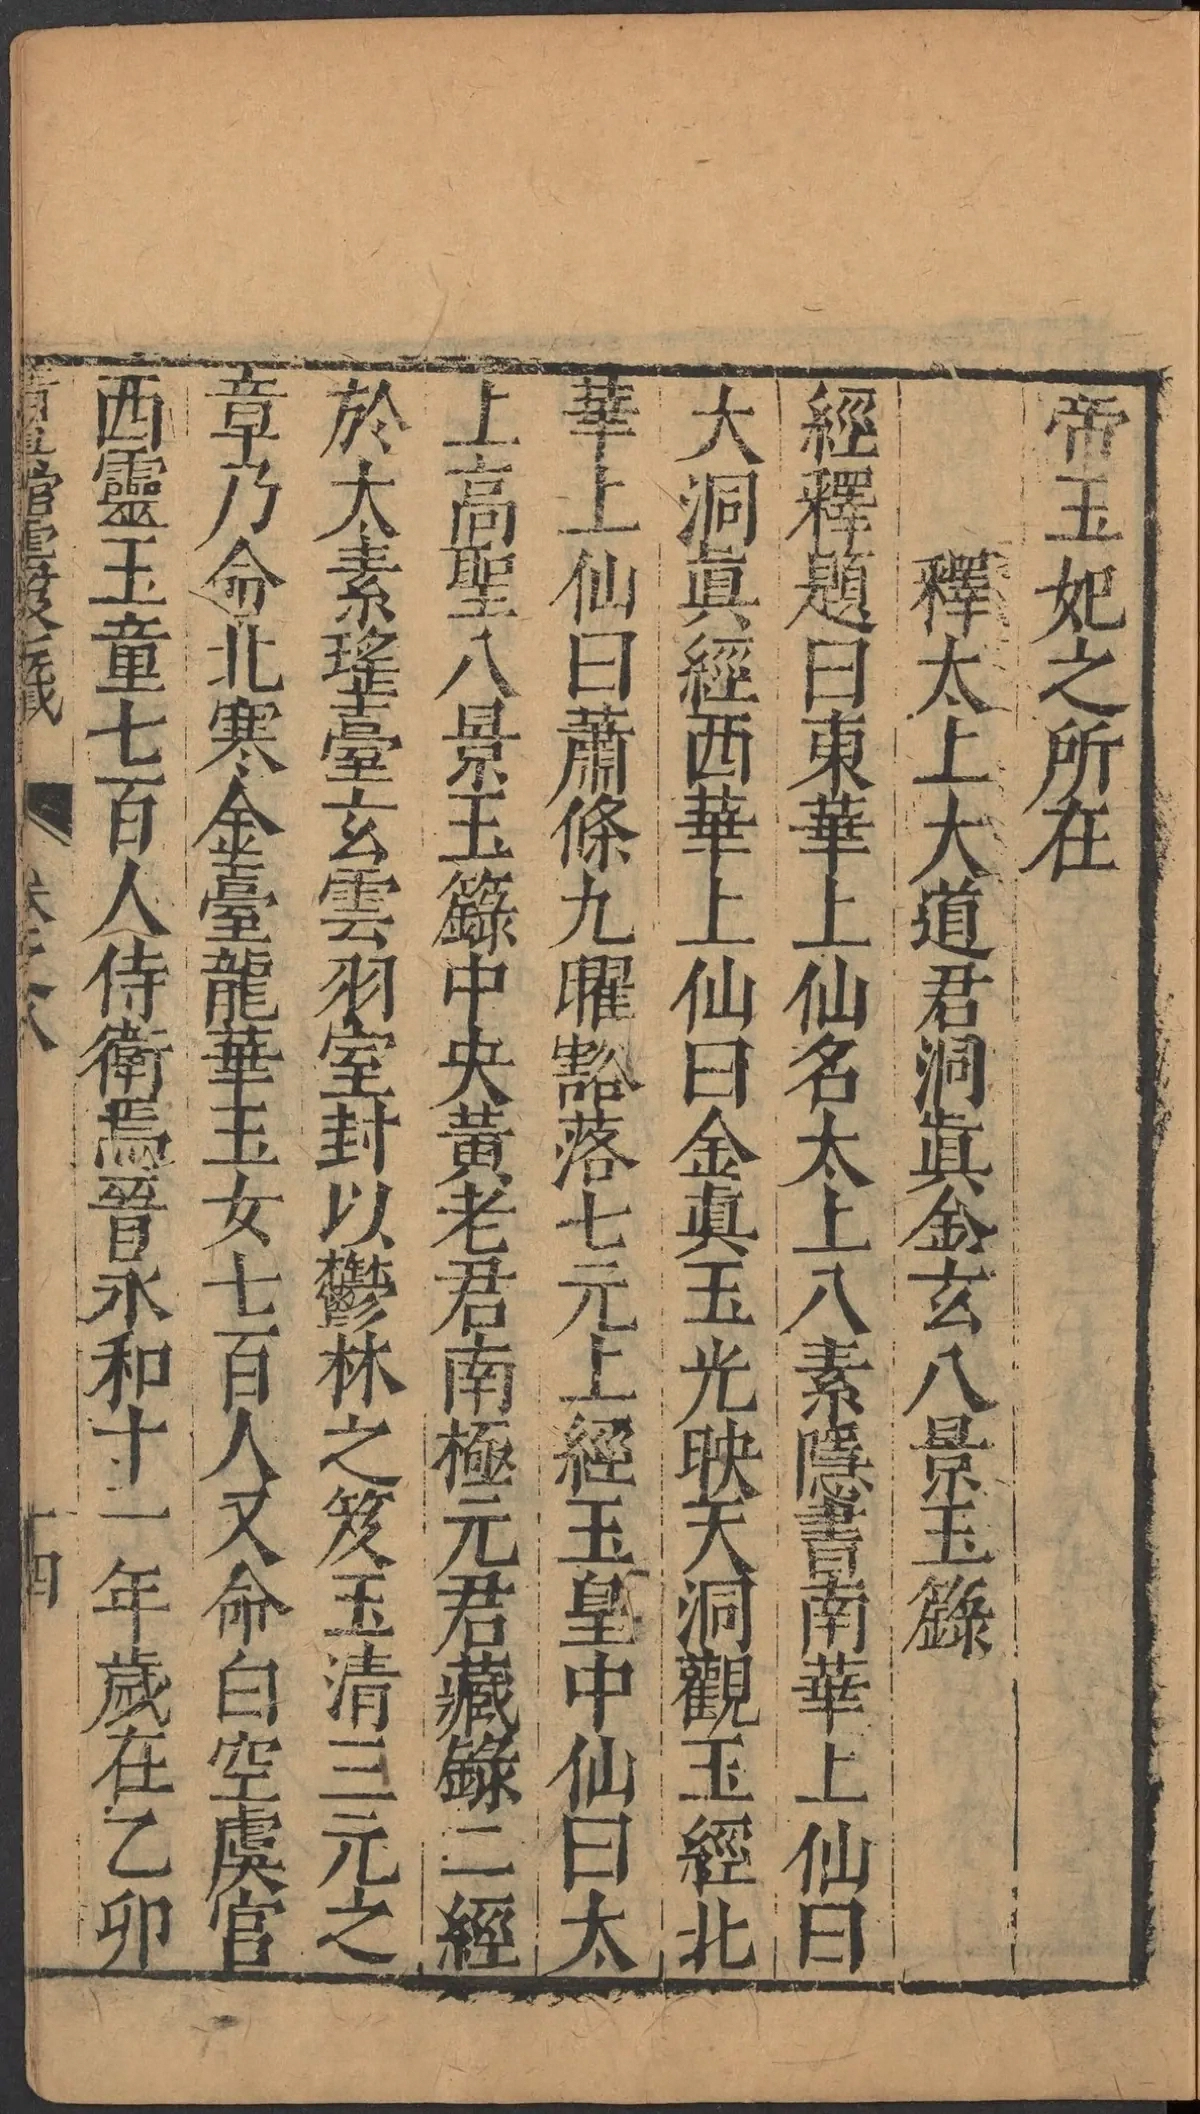 帝玉妃之所在
釋太上大道君洞眞金玄八景玉籙
經釋題曰東華上仙名太上八素隱書南華上仙曰
大洞眞經西華上仙曰金眞玉光映天洞觀玉經北
華上仙曰蕭條九曜豁落七元上經玉皇中仙曰太
上高聖八景玉籙中央黃老君南極元君藏籙二經
於太素瑤臺玄雲羽室封以鬱林之笈玉清三元之
章乃命北寒金臺龍華玉女七百人又命白空虞官
西靈玉童七百人侍衛焉晉永和十一年歲在乙卯